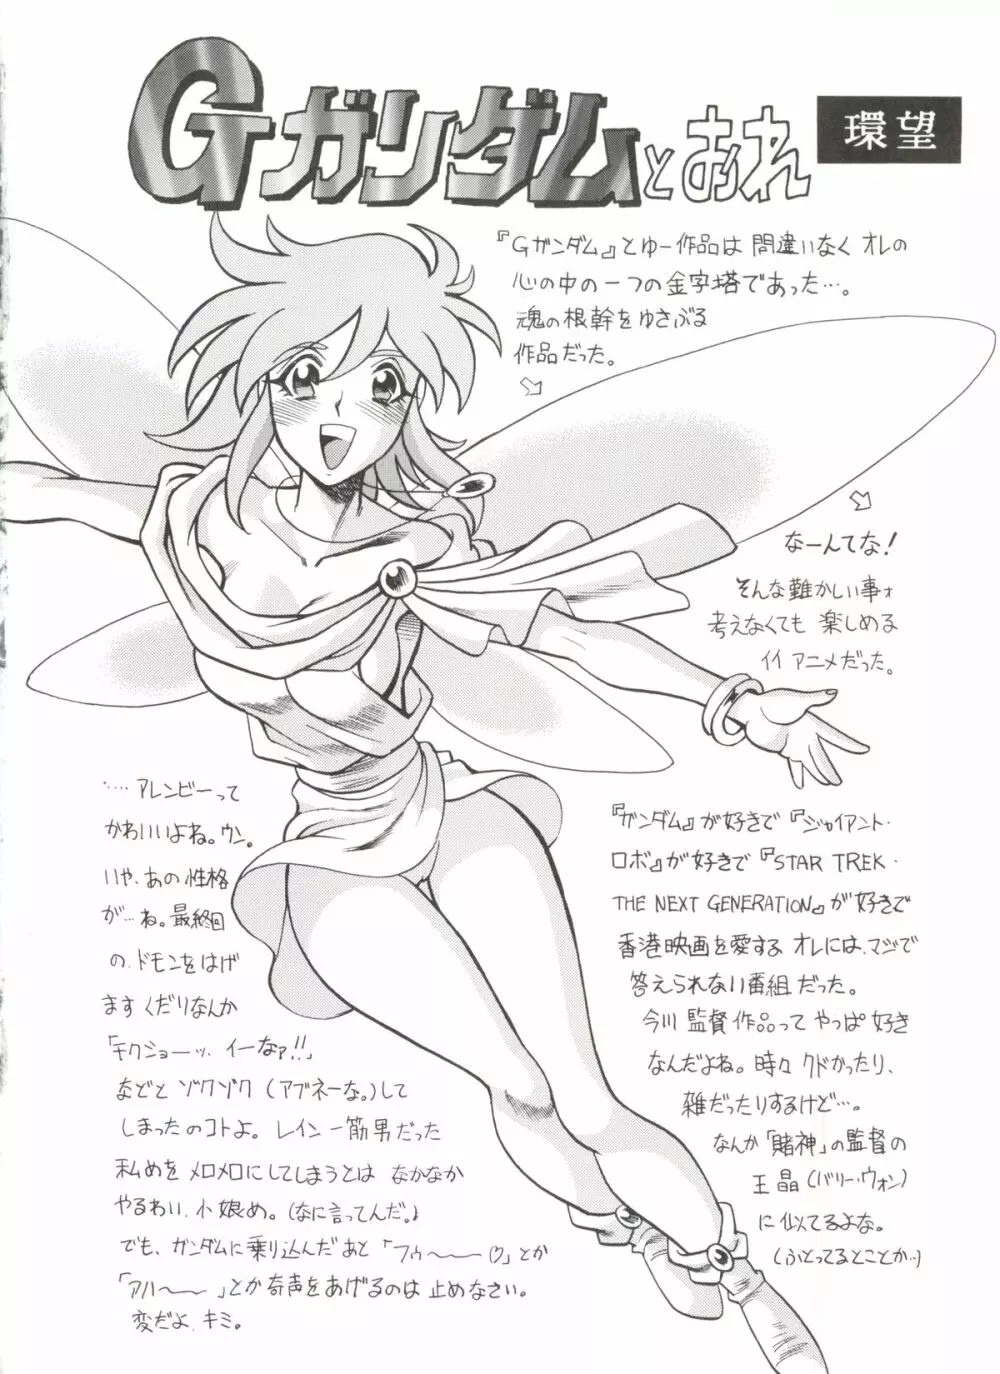 Gガンダムとおれ
環望
『Gガンダム』とゆー作品は間違いなくオレの
心の中の一つの金字塔であった…。
魂の根幹をゆさぶる
作品だった。
なーんてな!
そんな難かしい事ォ
考えなくても楽しめる
イイアニメだった。
『ガンダム』が好きで『ジャイアント・
ロボ』が好きで『STAR TREK・
THE NEXT GENERATION』が好きで
香港映画を愛するオレには、マジで
答えられない番組だった。
今川監督作品ってやっぱ好き
なんだよね。時々クドかったり、
雑だったりするけど…。
なんか「賭神」の監督の
王晶(バリー・ウォン)
に似てるよな。
(ふとってるとことか…)
……アレンビーって
かわいいよね。ウン。
いや、あの性格
が…ね。最終回
の、ドモンをはげ
ますくだりなんか
「チクショーッ、イーなァ!!」
などとゾクゾク(アブネーな。)して
しまったのコトよ。レイン一筋男だった
私めをメロメロにしてしまうとはなかなか
やるわい、小娘め。(なに言ってんだ。)
でも、ガンダムに乗り込んだあと「フゥ〜〜♡」とか
「アハ〜〜」とか奇声をあげるのは止めなさい。
変だよ、キミ。